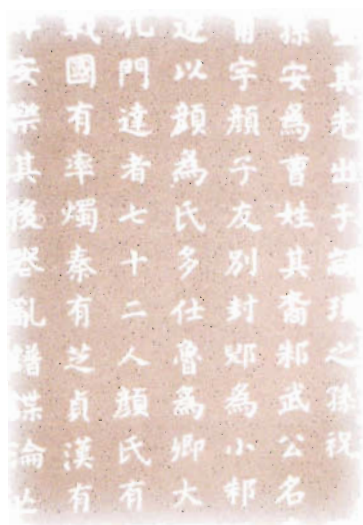 其先出于顓頊之孫祝
孫安為曹姓其裔邾武公名
甫字顏子友別封郳為小邾
以顏為氏多仕魯為卿大
孔門達者七十二人顏氏有
戰國有率燭秦有芝貞漢有
安樂其後亂譜諜淪亡